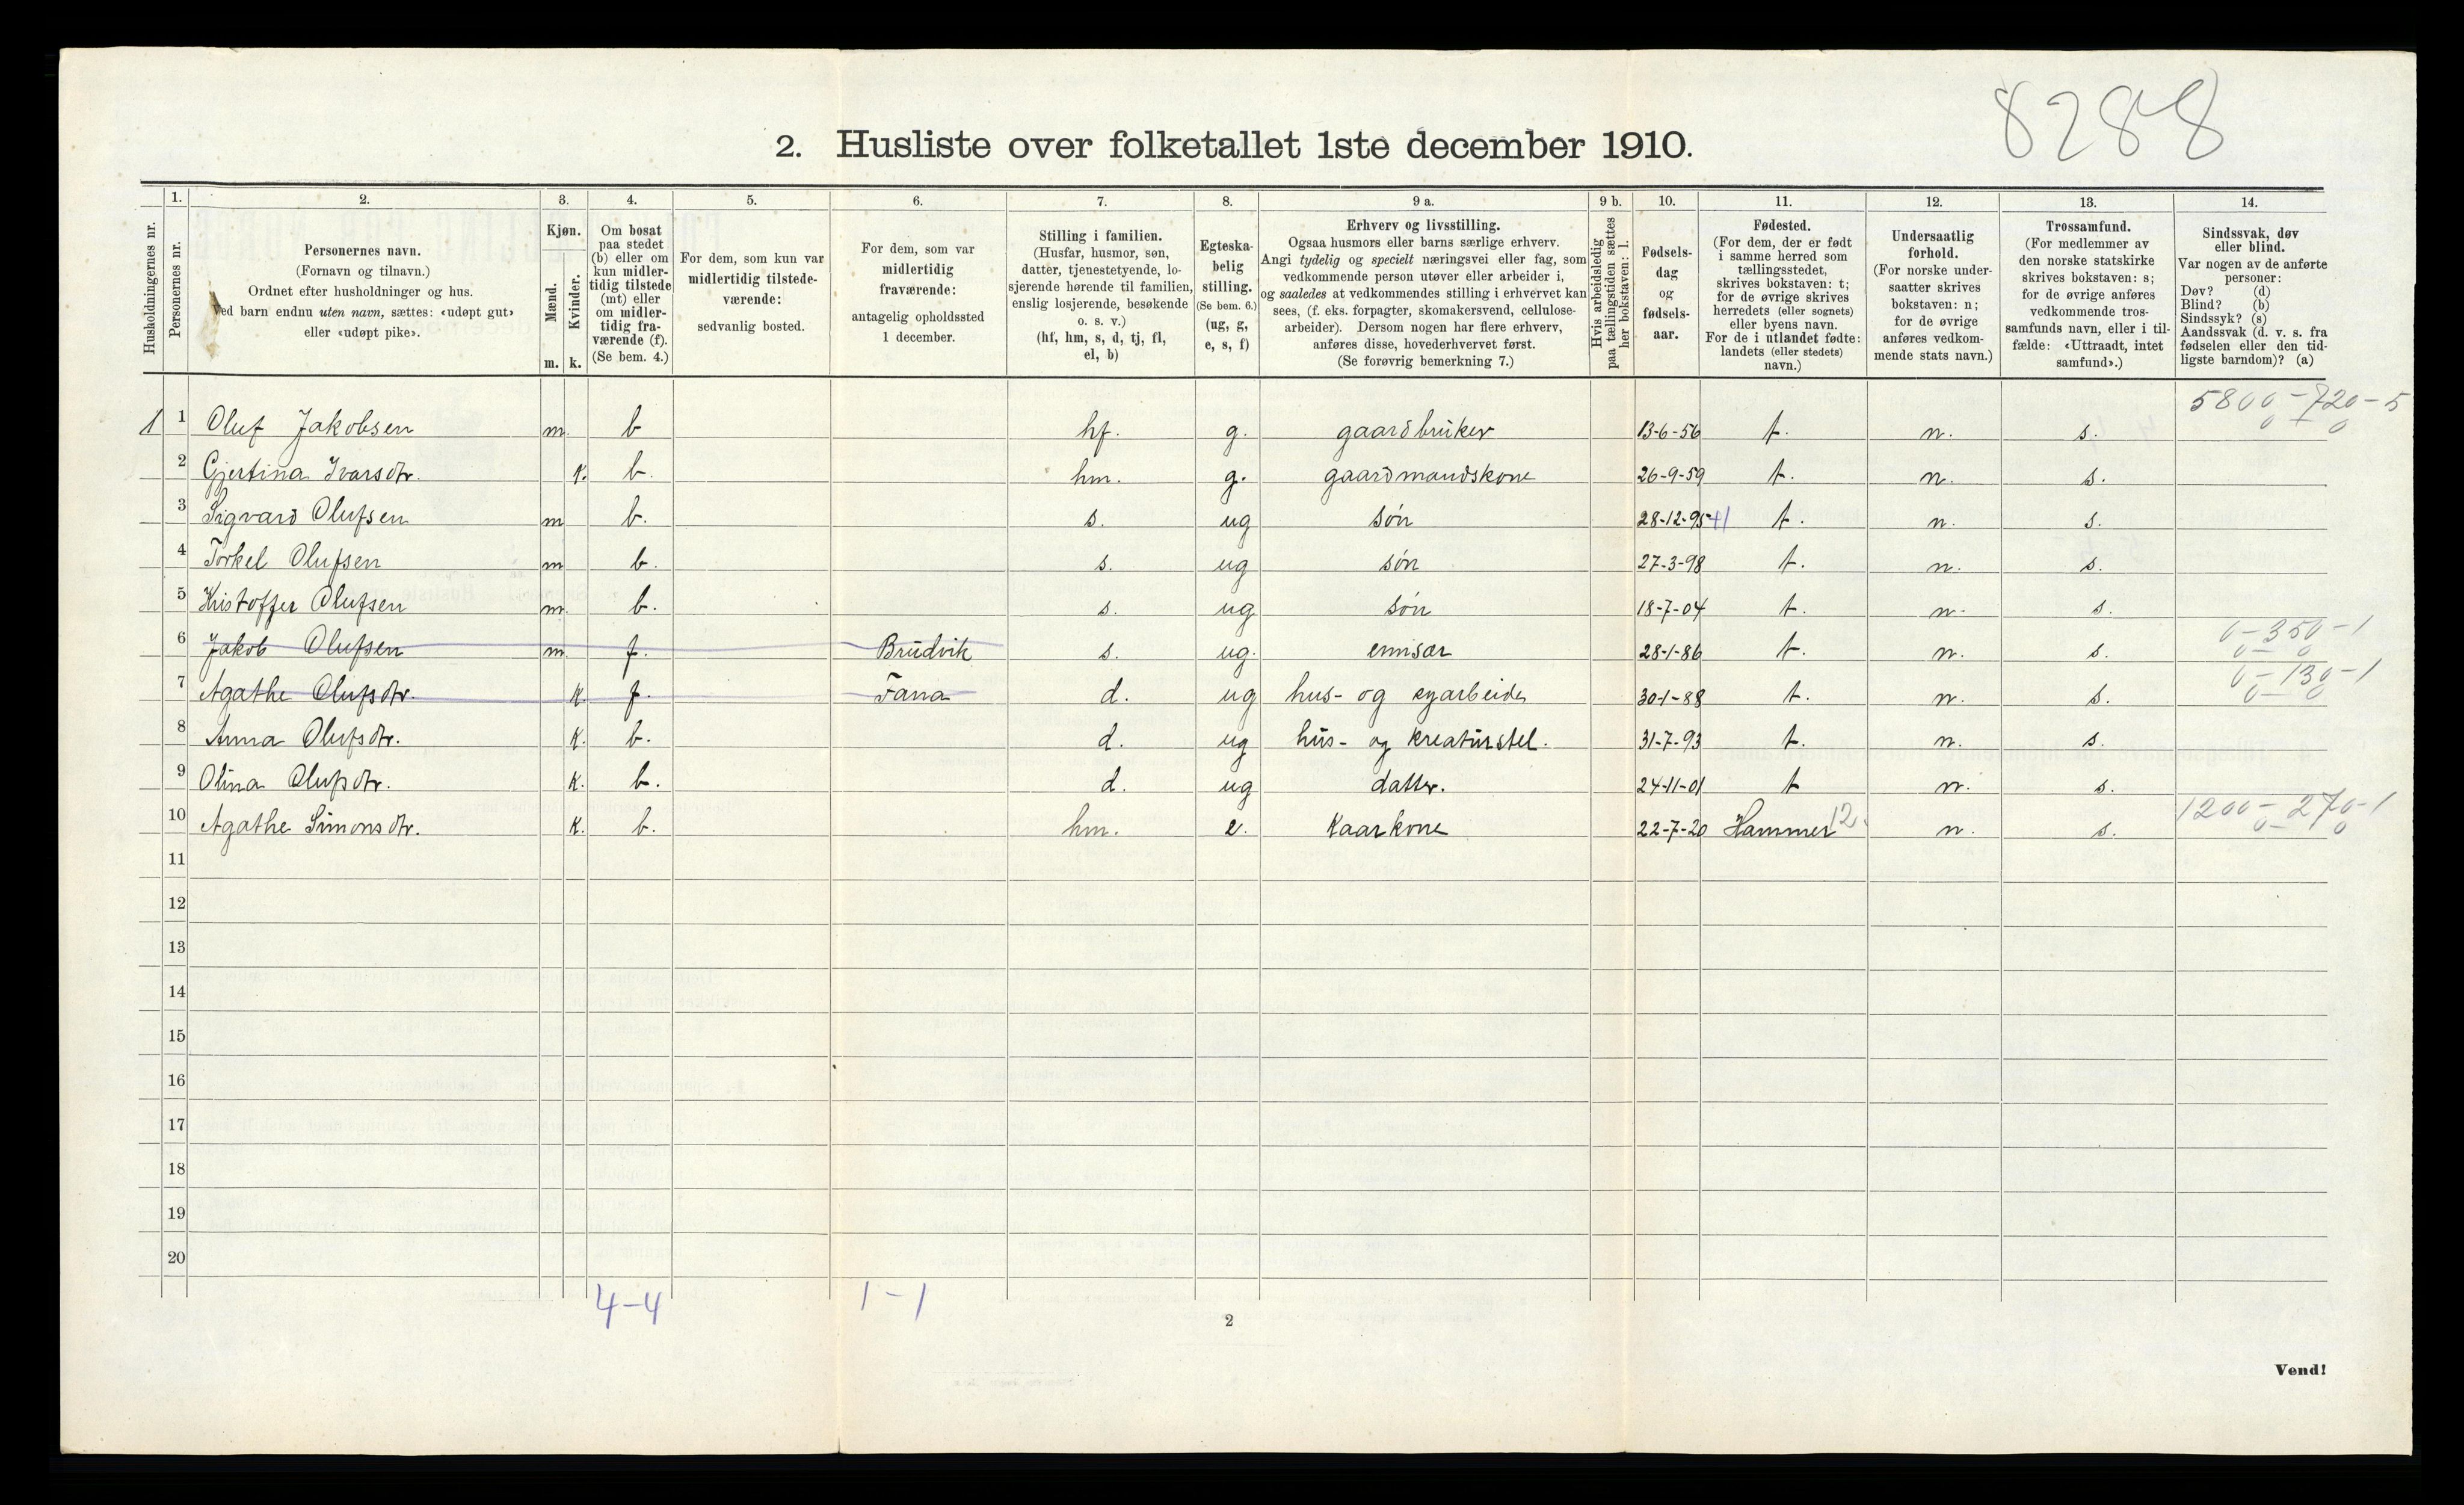 8288
2. Husliste over folketallet 1ste december 1910.
Husholdningernes nr.
1.
Personernes nr.
2.
Personernes navn.
(Fornavn og tilnavn.)
Ordnet efter husholdninger og hus.
Ved barn endnu uten navn, sættes: «udøpt gut»
eller «udøpt pike».
3.
Kjøn.
Mænd.
Kvinder.
m. k.
4.
Om bosat
paa stedet
(b) eller om
kun midler-
tidig tilstede
(mt) eller
om midler-
tidig fra-
værende (f).
(Se bem. 4.)
5.
For dem, som kun var
midlertidig tilstede-
værende:
sedvanlig bosted.
6.
For dem, som var
midlertidig
fraværende:
antagelig opholdssted
1 december.
7.
Stilling i familien.
(Husfar, husmor, søn,
datter, tjenestetyende, lo-
sjerende hørende til familien,
enslig losjerende, besøkende
o. s. v.)
(hf, hm, s, d, tj, fl,
el, b)
8.
Egteska-
belig
stilling.
(Se bem. 6.)
(ug, g,
e, s, f)
9 a.
Erhverv og livsstilling.
Ogsaa husmors eller barns særlige erhverv.
Angi tydelig og specielt næringsvei eller fag, som
vedkommende person utøver eller arbeider i,
og saaledes at vedkommendes stilling i erhvervet kan
sees, (f. eks. forpagter, skomakersvend, cellulose-
arbeider). Dersom nogen har flere erhverv,
anføres disse, hovederhvervet først.
(Se forøvrig bemerkning 7.)
9 b.
Hvis arbeidsledig
paa tællingstiden sættes
her bokstaven: l.
10.
Fødsels-
dag
og
fødsels-
aar.
11.
Fødested.
(For dem, der er født
i samme herred som
tællingsstedet,
skrives bokstaven: t;
for de øvrige skrives
herredets (eller sognets)
eller byens navn.
For de i utlandet fødte:
landets (eller stedets)
navn.)
12.
Undersaatlig
forhold.
(For norske under-
saatter skrives
bokstaven: n;
for de øvrige
anføres vedkom-
mende stats navn.)
13.
Trossamfund.
(For medlemmer av
den norske statskirke
skrives bokstaven: s;
for de øvrige anføres
vedkommende tros-
samfunds navn, eller i til-
fælde: «Uttraadt, intet
samfund».)
14.
Sindssvak, døv
eller blind.
Var nogen av de anførte
personer:
Døv? (d)
Blind? (b)
Sindssyk? (s)
Aandssvak (d. v. s. fra
fødselen eller den tid-
ligste barndom)? (a)
1 1 Oluf Jakobsen m. b hf. g. gaardbruker 13-6-56 t. n. s. 5800-720-5
2 Gjertina Ivarsdtr. k. b. hm. g. gaardmandskone 26-9-59 t. n. s.
3 Sigvard Olufsen m b. s. ug søn 28-12-95 t. n. s.
4 Torkel Olufsen m b. s. ug søn 27-3-98 t. n. s.
5 Kristoffer Olufsen m. b. s. ug søn 18-7-04 t. n. s.
6 Jakob Olufsen m. f. Brudvik s. ug. emisær 28-1-86 t. n. s. 0-350-1
7 Agathe Olufsdtr. k. f. Fana d. ug hus- og syarbeide 30-1-88 t. n. s. 0-130-1
8 Anna Olufsdtr. k. b. d. ug hus- og kreaturstel. 31-7-93 t. n. s.
9 Olina Olufsdtr. k. b. d. ug datter. 24-11-01 t n. s.
10 Agathe Simonsdtr. k. b. hm. e. Kaarkone 22-7-20 Hammer 12. n. s. 1200-270-1
11
12
13
14
15
16
17
18
19
20
4-4 1-1
2
Vend!